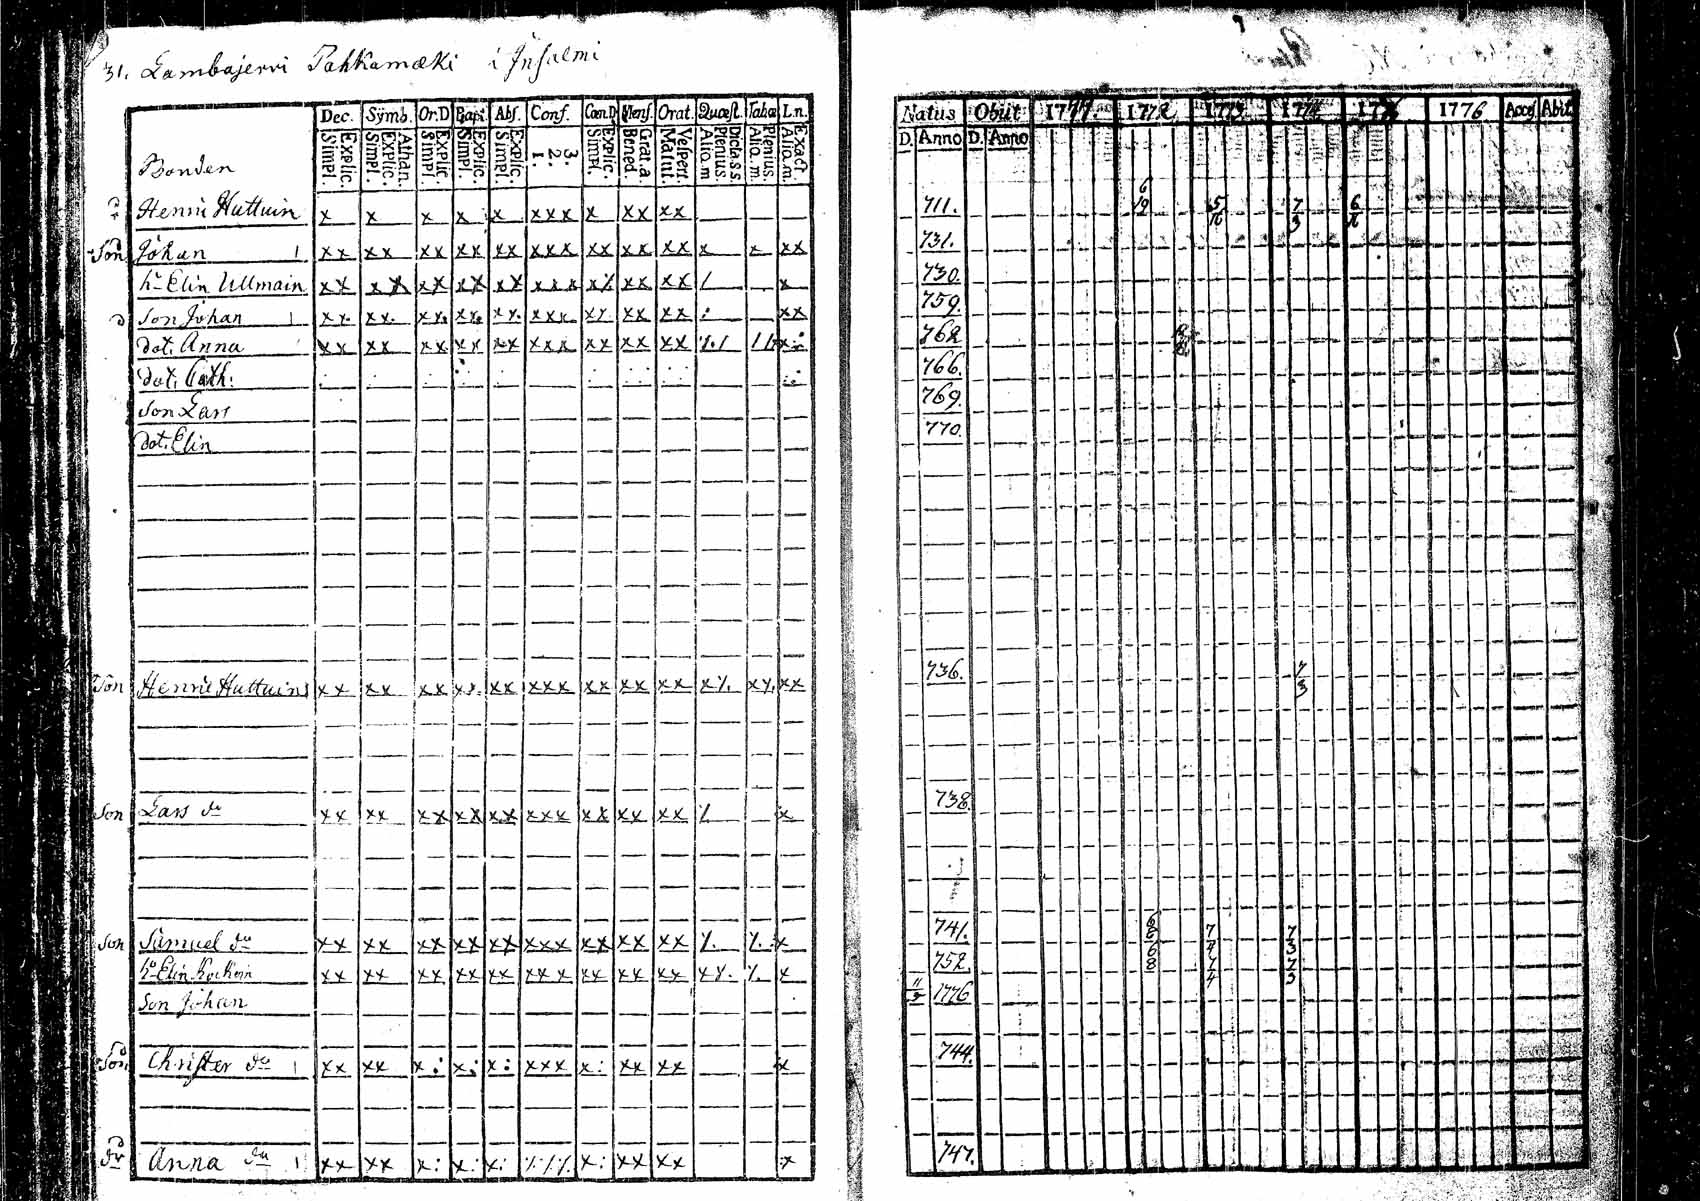 31. Lambajervi Pahkamæki i Jnsalmi
Dec. Sÿmb. Or.D Bapt. Abs. Conf. Cœn.D Mens. Orat. Quæst. Tabœ L.n.
Explic. Simpl. Athan. Explic. Simpl. Explic. Simpl. Explic. Simpl. Explic. Simpl. 3. 2. 1. Explic. Simpl. Grat.a Bened. Vespert. Matut. Dicta.s.s. Plenius. Aliq.m Plenius. Aliq.m. Exact Aliq.m.
Natus Obiit 1771. 1772. 1773. 1774. 1775 1776 Acces Abit
D. Anno D. Anno
Bonden
Henric Huttuin x x x x x xxx x xx xx 711. 6 19 5 16 7 3 6 16
Son Johan xx xx xx xx xx xxx xx xx xx x x xx 731.
h. Elin Ullmain xx xx xx xx xx xxx xx xx xx / x 730.
Son Johan xx. xx. xx. xx. xx. xxx xx. xx xx : xx 759.
dot. Anna xx xx xx xx xx xxx xx xx xx 762
dot. Cath. 766.
Son Lars 769.
dot. Elin 770.
Son Henric Huttuin xx xx xx xx. xx xxx xx xx xx x/. x/. xx 736. 7 3
Son Lars do xx xx xx xx xx xxx xx xx xx / x 738.
Son Samuel do xx xx xx xx xx xxx xx xx xx /. /. x 741. 6 8 7 4 7 3
h. Elin Kockoin xx xx xx xx xx xxx xx xx xx x/. /. x 752. 6 8 7 4 7 3
Son Johan 11/3 1776
Son Christer do xx xx x: x: x: xxx x: xx xx x 744.
dr Anna do xx xx x: x: x: /// x: xx xx x 747.